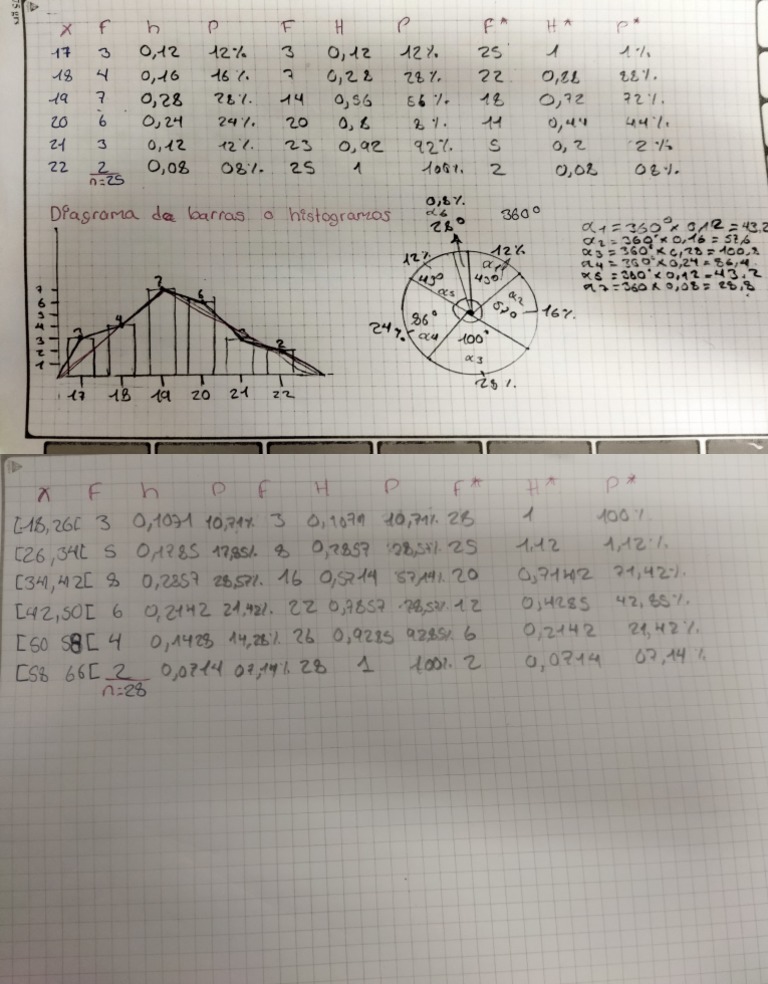 x F h P F H P F* H* P*
17 3 0,12 12% 3 0,12 12% 25 1 1%
18 4 0,16 16% 7 0,28 28% 22 0,88 88%
19 7 0,28 28% 14 0,56 56% 18 0,72 72%
20 6 0,24 24% 20 0,8 8% 11 0,44 44%
21 3 0,12 12% 23 0,92 92% 5 0,2 2%
22 2 0,08 08% 25 1 100% 2 0,08 08%
n=25
Diagrama de barras o histogramas
7
6
5
4
3
2
1
3 4 7 6 3 2
17 18 19 20 21 22
0,8%
α6
28°
360°
12% 12%
43° α5 43° α1
α2 16%
24% 86° α4
100°
α3
28%
α1 = 360° x 0,12 = 43,2
α2 = 360° x 0,16 = 57,6
α3 = 360° x 0,28 = 100,8
α4 = 360° x 0,24 = 86,4
α5 = 360° x 0,12 = 43,2
α7 = 360 x 0,08 = 28,8
x F h P F H P F* H* P*
[18,26[ 3 0,1071 10,71% 3 0,1071 10,71% 28 1 100%
[26,34[ 5 0,1785 17,85% 8 0,2857 28,57% 25 1,12 1,12%
[34,42[ 8 0,2857 28,57% 16 0,5714 57,14% 20 0,7142 71,42%
[42,50[ 6 0,2142 21,42% 22 0,7857 78,57% 12 0,4285 42,85%
[50 58[ 4 0,1428 14,28% 26 0,9285 9285% 6 0,2142 21,42%
[58 66[ 2 0,0714 07,14% 28 1 100% 2 0,0714 07,14%
n=28